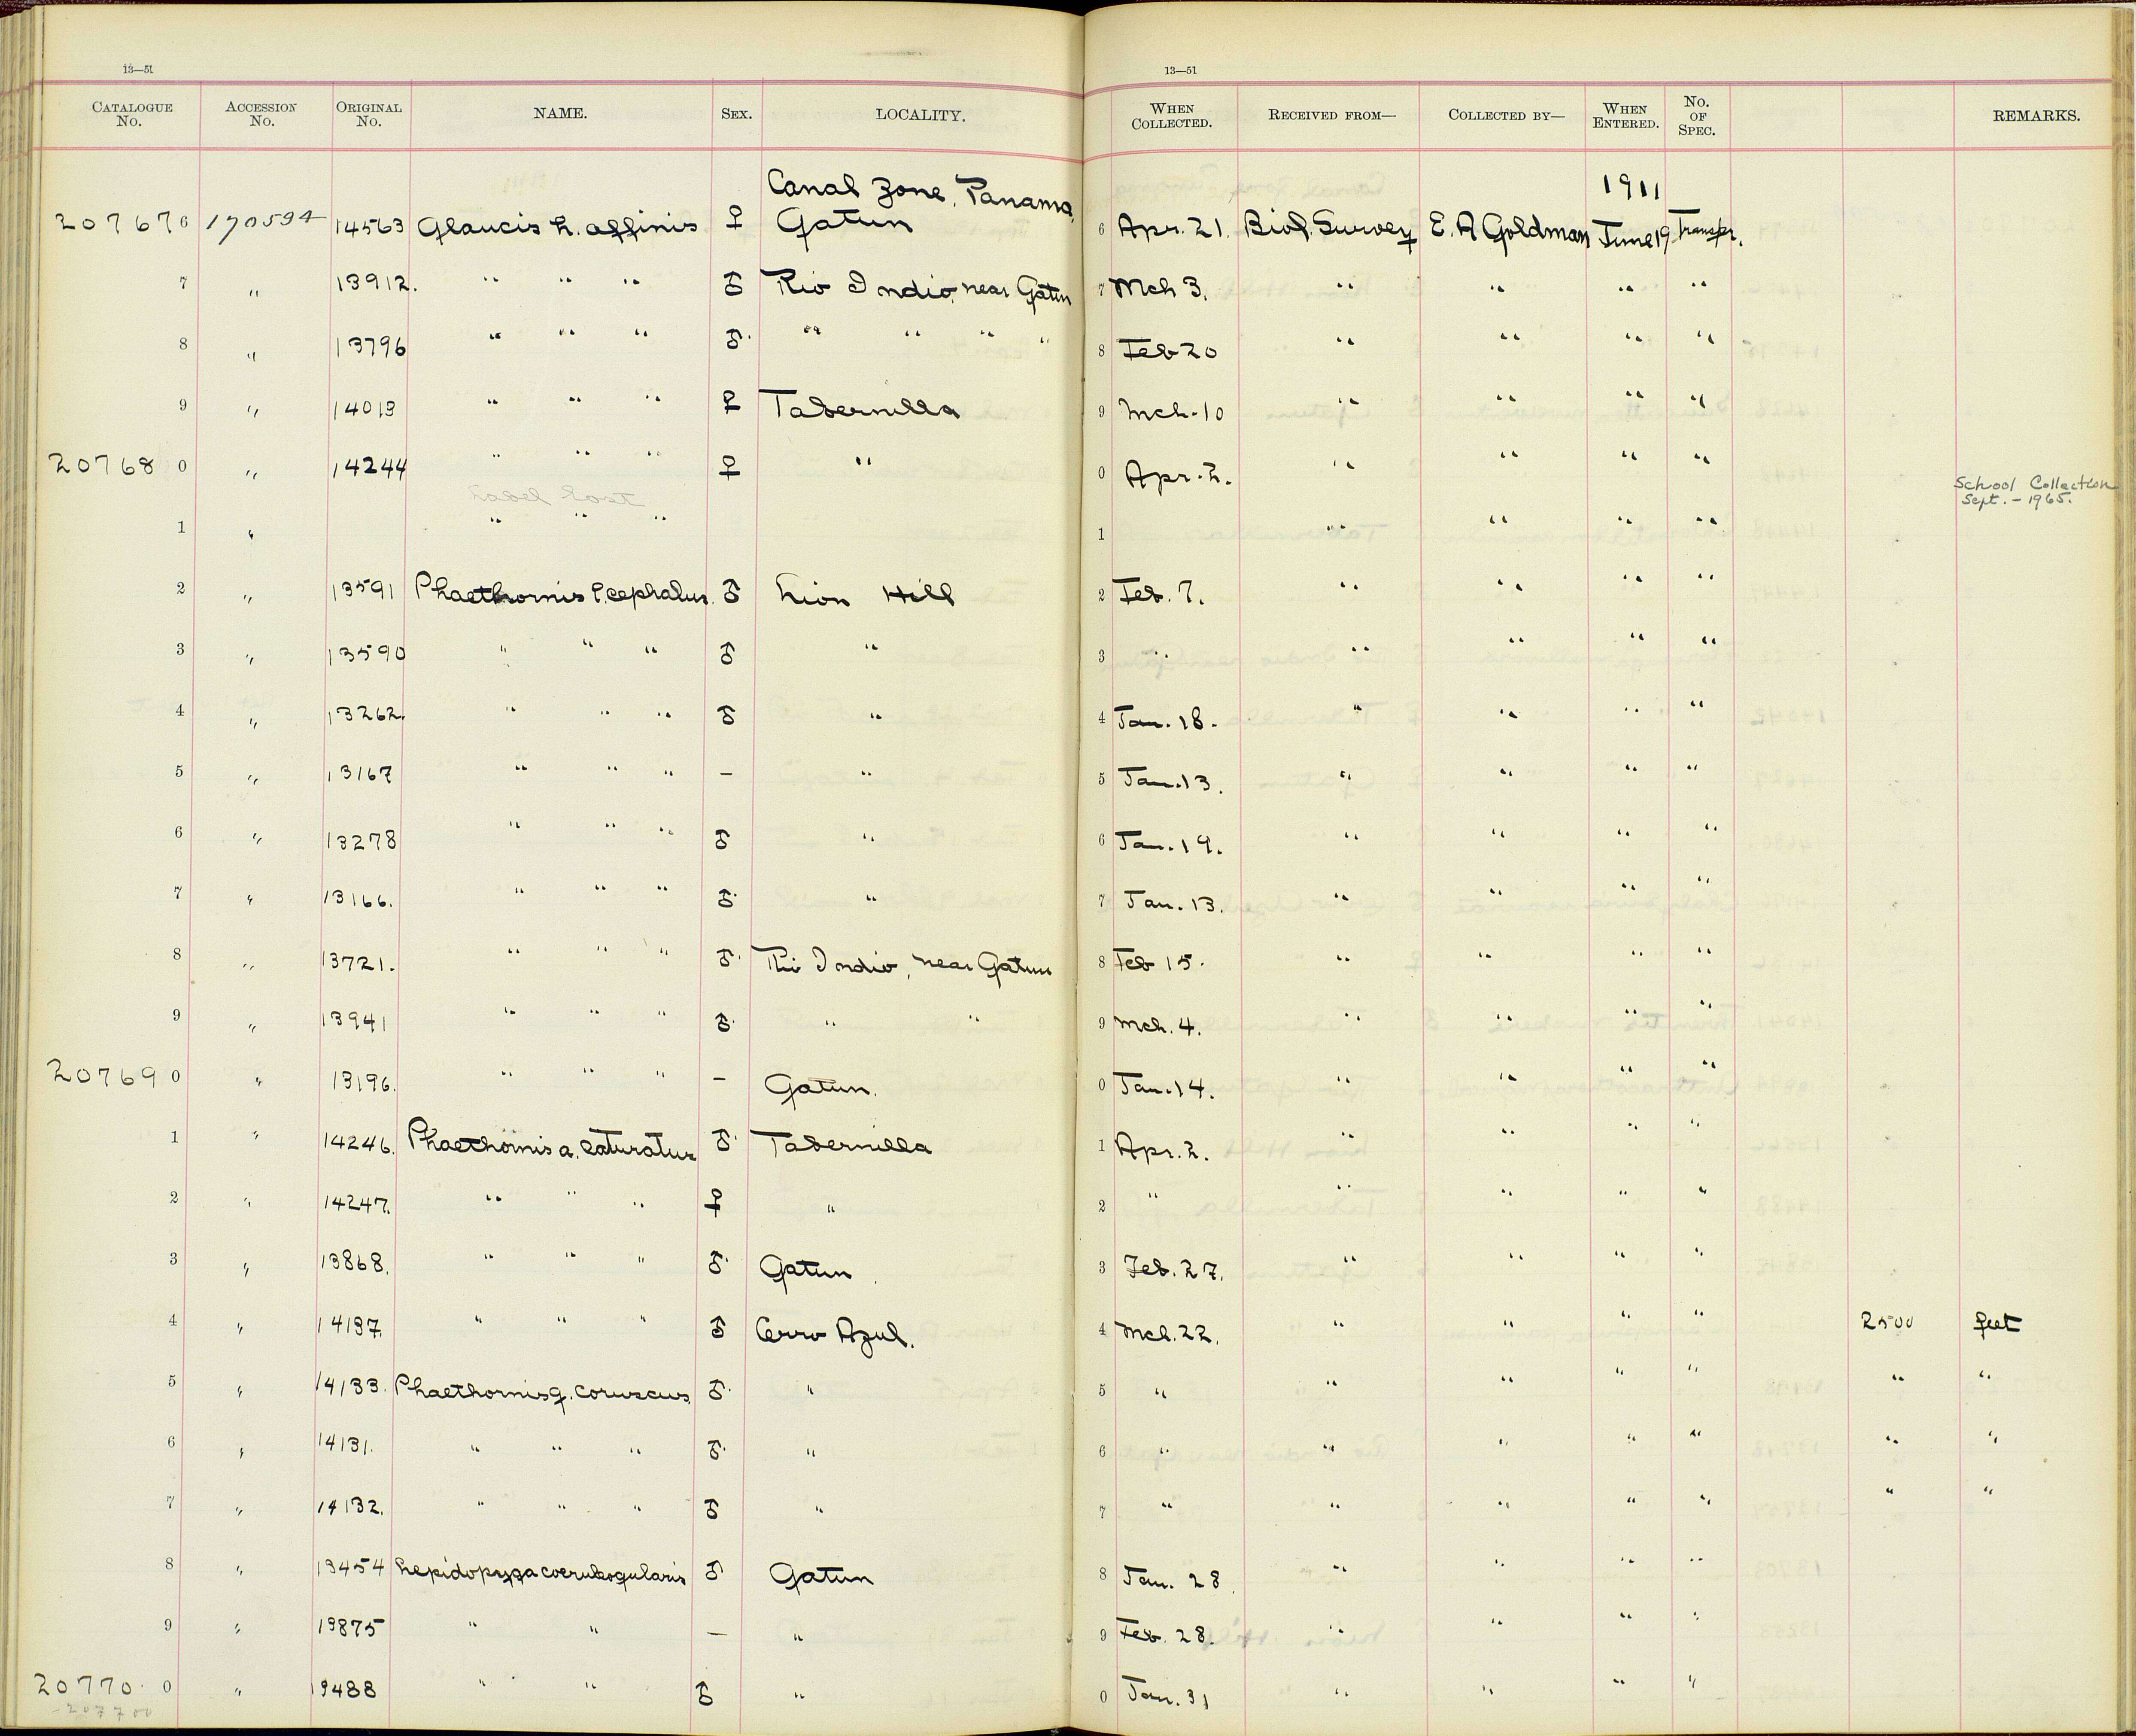 13—51 13—51
CATALOGUE No. ACCESSION No. ORIGINAL No. NAME. SEX. LOCALITY. WHEN COLLECTED. RECEIVED FROM— COLLECTED BY— WHEN ENTERED. No. OF SPEC. REMARKS.
Canal Zone, Panama, 1911
207676 170594 14563 Glaucis h. affinis ♀ Gatun 6 Apr. 21. Biol. Survey E. A Goldman June 19 Transfr.
7 " 13912. " " " ♂ Rio Indio, near Gatun 7 Mch 3. " " " "
8 " 13796 " " " ♂ " " " " 8 Feb 20 " " " "
9 " 14013 " " " ♀ Tabernilla 9 Mch. 10 " " " "
20768 0 " 14244 " " " ♀ " 0 Apr. 2. " " " "
Label Lost School Collection
Sept. - 1965.
1 " " " " 1 " " " "
2 " 13591 Phaethornis l. cephalus. ♂ Lion Hill 2 Feb. 7. " " " "
3 " 13590 " " " ♂ " 3 " " " " "
4 " 13262. " " " ♂ " 4 Jan. 18. " " " "
5 " 13167 " " " — " 5 Jan. 13. " " " "
6 " 13278 " " " ♂ " 6 Jan. 19. " " " "
7 " 13166. " " " ♂ " 7 Jan. 13. " " " "
8 " 13721. " " " ♂ Rio Indio, near Gatun 8 Feb 15. " " " "
9 " 13941 " " " ♂ " " 9 Mch. 4. " " " "
20769 0 " 13196. " " " — Gatun. 0 Jan. 14. " " " "
1 " 14246. Phaethornis a. saturatus ♂ Tabernilla 1 Apr. 2. " " " "
2 " 14247. " " " ♀ " 2 " " " " "
3 " 13868. " " " ♂ Gatun. 3 Feb. 27. " " " "
4 " 14137 " " " ♂ Cerro Azul. 4 Mch. 22. " " " " 2500 feet
5 " 14133. Phaethornis g. coruscus. ♂ " 5 " " " " " " "
6 " 14131. " " " ♂ " 6 " " " " " " "
7 " 14132. " " " ♂ " 7 " " " " " " "
8 " 13454 Lepidopyga coeruleogularis ♂ Gatun 8 Jan. 28. " " " "
9 " 13875 " " — " 9 Feb. 28. " " " "
20770 0 " 13488 " " ♂ " 0 Jan. 31 " " " "
-207700